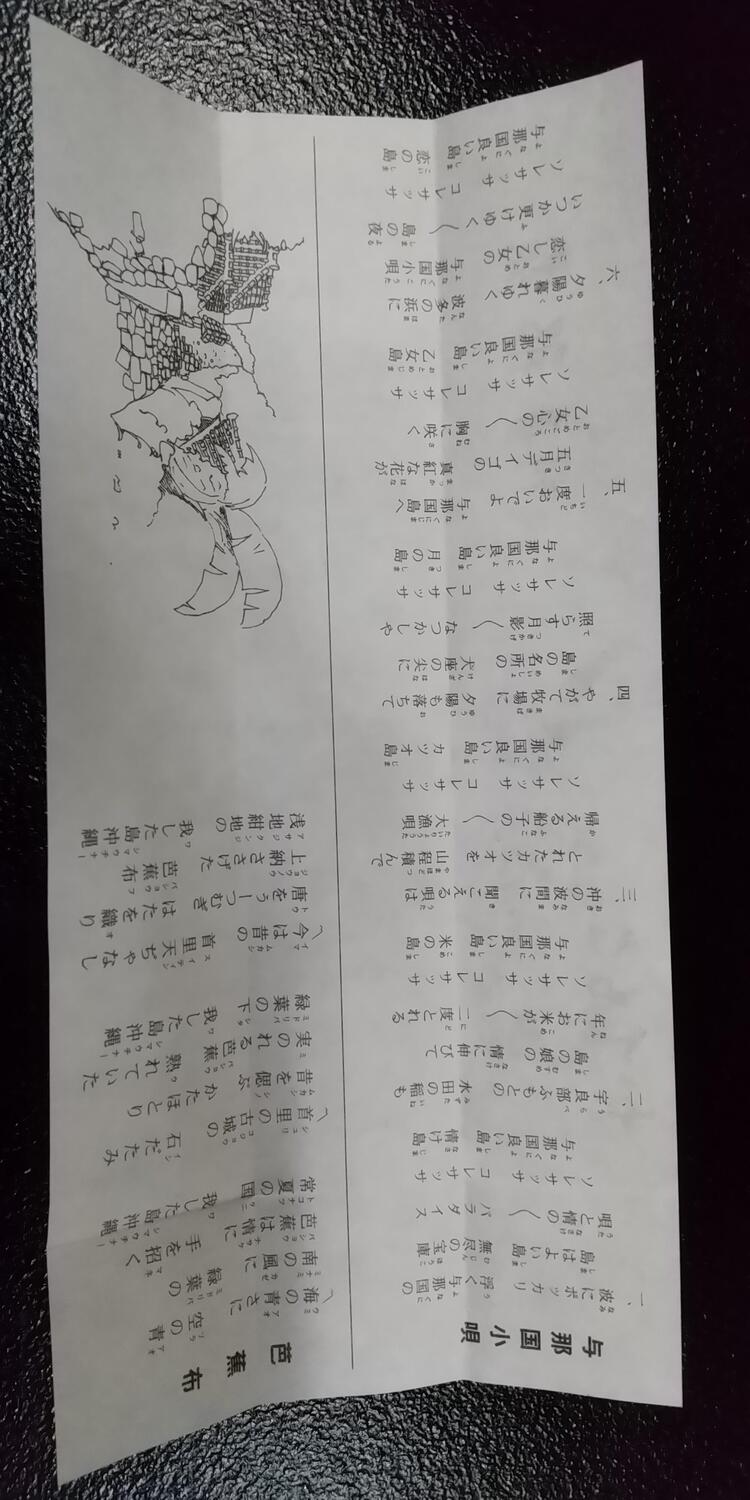 与那国小唄
一、波にポッカリ 浮く与那国の
島はよい島 無尽の宝庫
唄と情の〱 パラダイス
ソレサッサ コレサッサ
与那国良い島 情け島
二、宇良部ふもとの 水田の稲も
島の娘の 情に伸びて
年にお米が〱 二度とれる
ソレサッサ コレサッサ
与那国良い島 米の島
三、沖の波間に 聞こえる唄は
とれたカツオを 山程積んで
帰える船子の〱 大漁唄
ソレサッサ コレサッサ
与那国良い島 カツオ島
四、やがて牧場に 夕陽も落ちて
島の名所の 犬座の尖に
照らす月影〱 なつかしや
ソレサッサ コレサッサ
与那国良い島 月の島
五、一度おいでよ 与那国島へ
五月デイゴの 真紅な花が
乙女心の〱 胸に咲く
ソレサッサ コレサッサ
与那国良い島 乙女島
六、夕陽暮れゆく 波多の浜に
恋し乙女の 与那国小唄
いつか更けゆく〱 島の夜
ソレサッサ コレサッサ
与那国良い島 恋の島
芭蕉布
〽海の青さに 空の青
南の風に 緑葉の
芭蕉は情に 手を招く
常夏の国 我した島沖縄
〽首里の古城の 石だたみ
昔を偲ぶ かたほとり
実のれる芭蕉 熟れていた
緑葉の下 我した島沖縄
〽今は昔の 首里天ぢゃなし
唐をぅーつむぎ はたを織り
上納ささげた 芭蕉布
浅地紺地の 我した島沖縄